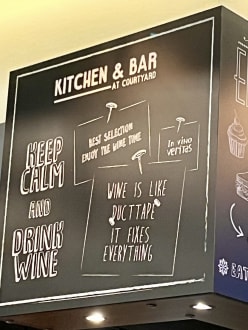 KITCHEN & BAR
AT COURTYARD
BEST SELECTION
ENJOY THE WINE TIME
In vino
veritas
KEEP
CALM
AND
DRINK
WINE
WINE IS LIKE
DUCTTAPE
IT FIXES
EVERYTHING
EAT